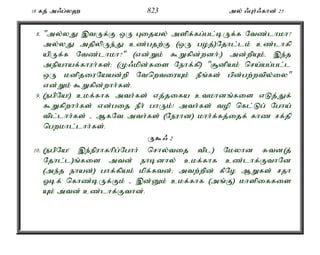 18 கத் அஃப்லஹ 823 அல் ஃபுர்கான் 25
8. "அல்லது இவருக்கு ஒரு புதையல் அளிக்கப்பட்டிருக்க வேண்டாமா?
அல்லது அதிலிருந்து உண்பதற்கு (ஒரு பழத்)தோட்டம் உண்டாகி
யிருக்க வேண்டாமா?" (என்றும் கூறுகின்றனர்) அன்றியும், இந்த
அநியாயக்காரர்கள்: (முஃமின்களை நோக்கி) "சூனியம் செய்யப்பட்ட
ஒரு மனிதரையேயன்றி வேறெவரையும் நீங்கள் பின்பற்றவில்லை"
என்றும் கூறுகின்றார்கள்.
9. (நபியே!) உமக்காக அவர்கள் எத்தகைய உவமானங்களை எடுத்துக்
கூறுகிறார்கள் என்பதை நீர் பாரும்! அவர்கள் வழி கெட்டுப் போய்
விட்டார்கள் , ஆகவே அவர்கள் (நேரான) மார்க்கத்தைக் காண சக்தி
பெறமாட்டார்கள்.
ருகூஃ 2
10. (நபியே! இந்நிராகரிப்போர் சொல்வதை விட) மேலான சுவன(த்
தோட்ட)ங்களை அவன் நாடினால் உமக்காக உண்டாக்குவானே
(அந்த நாயன்) பாக்கியம் மிக்கவன்; அவற்றின் கீழே ஆறுகள் சதா
ஓடிக் கொண்டிருக்கும் , இன்னும் உமக்காக (அங்கு) மாளிகைகளை
யும் அவன் உண்டாக்குவான்.